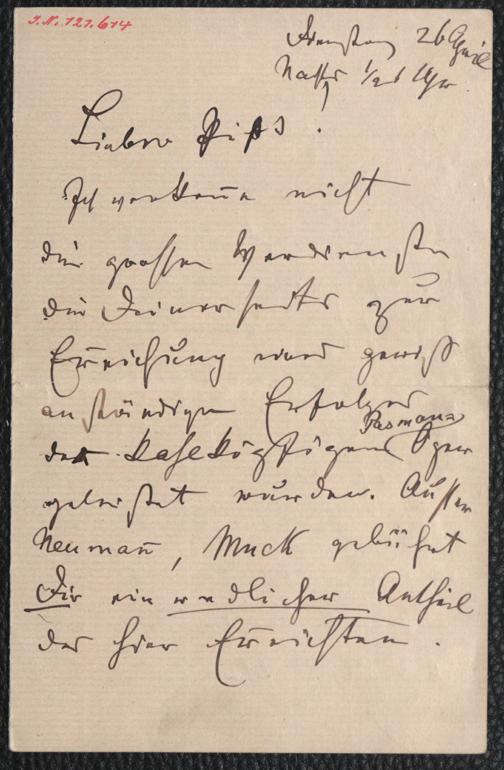 I.N. 121.614
Dienstag 26 April
Nachts 1/2 1 Uhr
Lieber Pips!
Ich verkenne nicht
die grossen Verdienste
die Deinerseits zur
Erreichung eines gewiss
anständigen Erfolges
Tasmans
der kahlköpfigen Oper
geleistet wurden. Ausser
Neumann, Muck gebührt
Dir ein redlicher Antheil
des hier Erreichten.